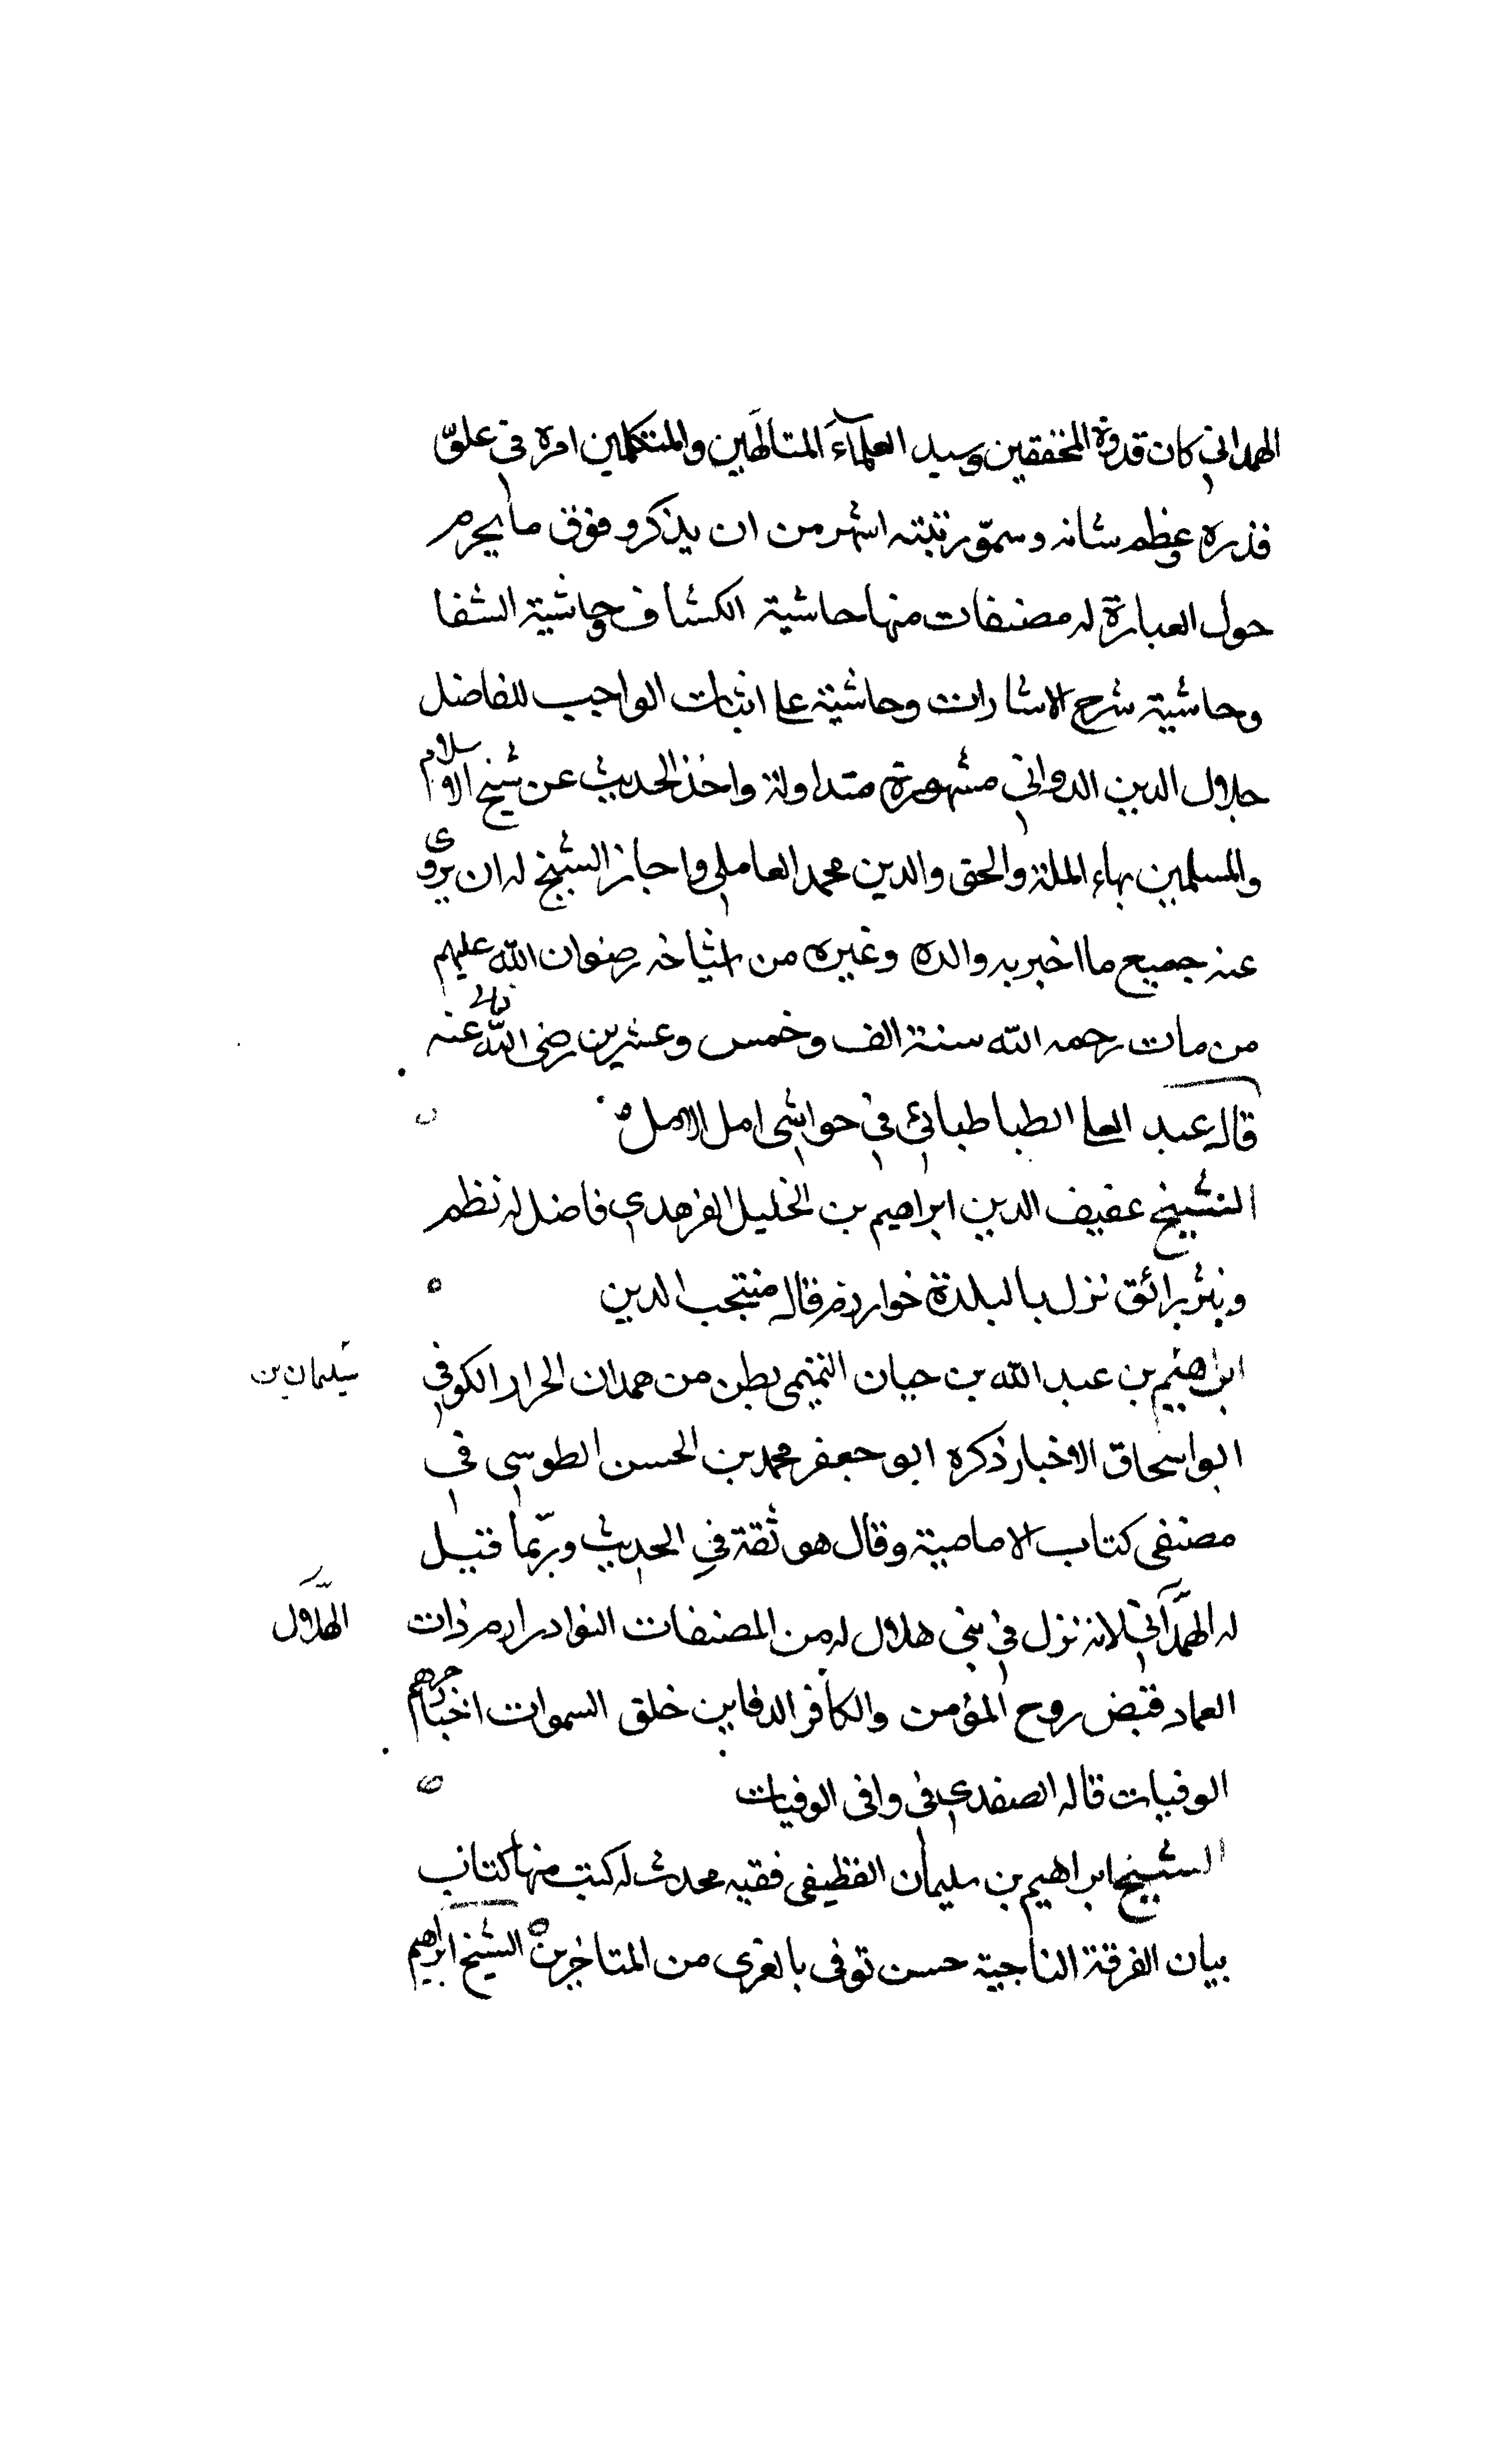 الهمداني كان قدوة المحققين وسيد العلماء المتالهين والمتكلمين امره في علوّ
قدره وعظم شانه وسموّ رتبته اشهر من ان يذكر وفوق ما يحرم
حول العبارة له مصنفات منها حاشية الكشاف وحاشية الشفا
وحاشية شرح الاشارات وحاشية على اثبات الواجب للفاضل
جلال الدين الدواني مشهورة متداولة واخذ الحديث عن شيخ الاسلام
والمسلمين بهاء الملة والحق والدين محمد العاملي واجاز الشيخ له ان يروى
عنه جميع ما اخبر به والده وغيره من اشياخه رضوان الله عليهم
من مات رحمه الله سنة الف وخمس وعشرين رضى الله عنه
قاله عبد العلى الطباطبائي في حواشى امل الامل
الشيخ عفيف الدين ابراهيم بن الخليل الفرهدي فاضل له نظم
ونثر رائق نزل بالبلدة خوار قاله منتجب الدين
ابراهيم بن عبد الله بن حيان التميمى بطن من همدان الكوفي
سليمان بن
ابو اسحاق الاخبار ذكره ابو جعفر محمد بن الحسن الطوسي في
مصنفى كتاب الامامية وقال هو ثقة في الحديث وربّما قيل
له الهمدانى لانه نزل في بني هلال له من المصنفات النوادر ارم ذات
الهلال
العماد قبض روح المؤمن والكافر الدفاين خلق السموات اخبار جرهم
الوفيات قاله الصفدي في وافى الوفيات
الشيخ ابراهيم بن سليمان القطيفى فقيه محدث له كتب منها كتاب
بيان الفرقة الناجية حسن توفى بالغرى من المتاخرين الشيخ ابراهيم